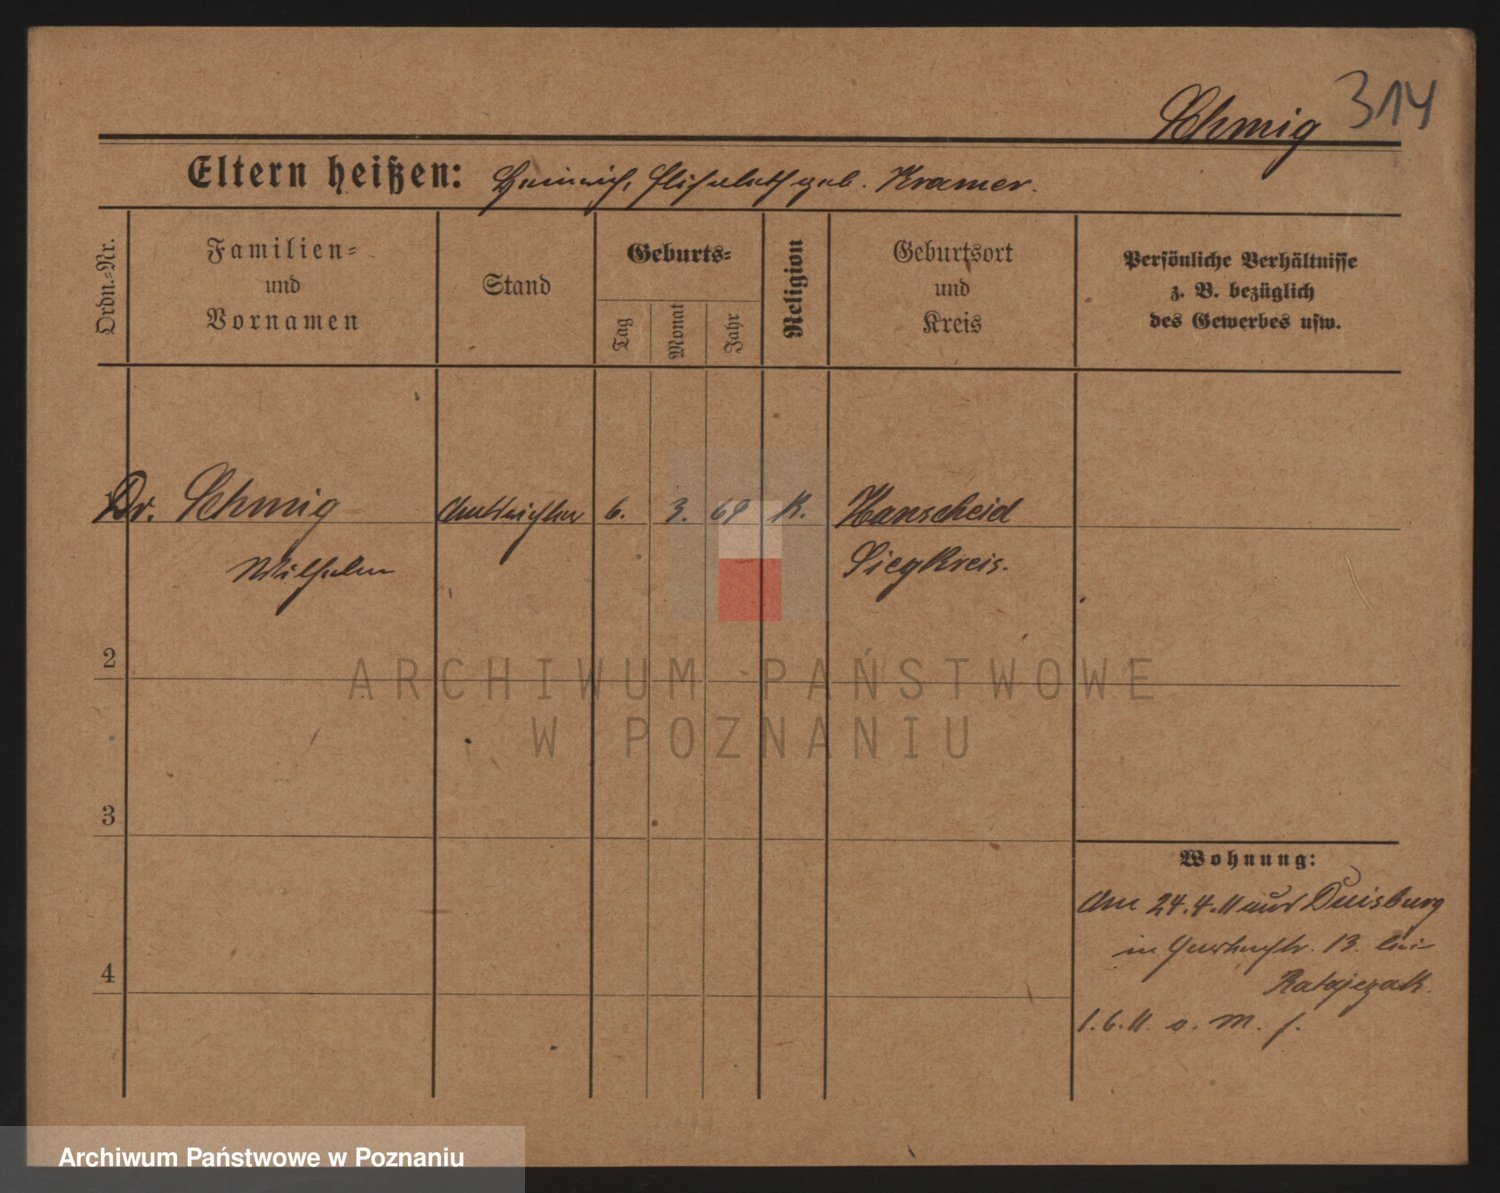 Schmig 314
Eltern heißen: Heinrich, Elisabeth geb. Kramer.
Ordn.-Nr.
Familien-
und
Vornamen
Stand
Geburts-
Tag
Monat
Jahr
Religion
Geburtsort
und
Kreis
Persönliche Verhältnisse
z. B. bezüglich
des Gewerbes usw.
Dr. Schmig Amtsrichter 6. 3. 69 K. Hanscheid
Wilhelm Siegkreis.
2
ARCHIWUM PAŃSTWOWE
W POZNANIU
3
Wohnung:
Am 24.4.11 aus Duisburg
in 13. bei
Ratajczak.
4
1.6.11. o. M. f.
Archiwum Państwowe w Poznaniu